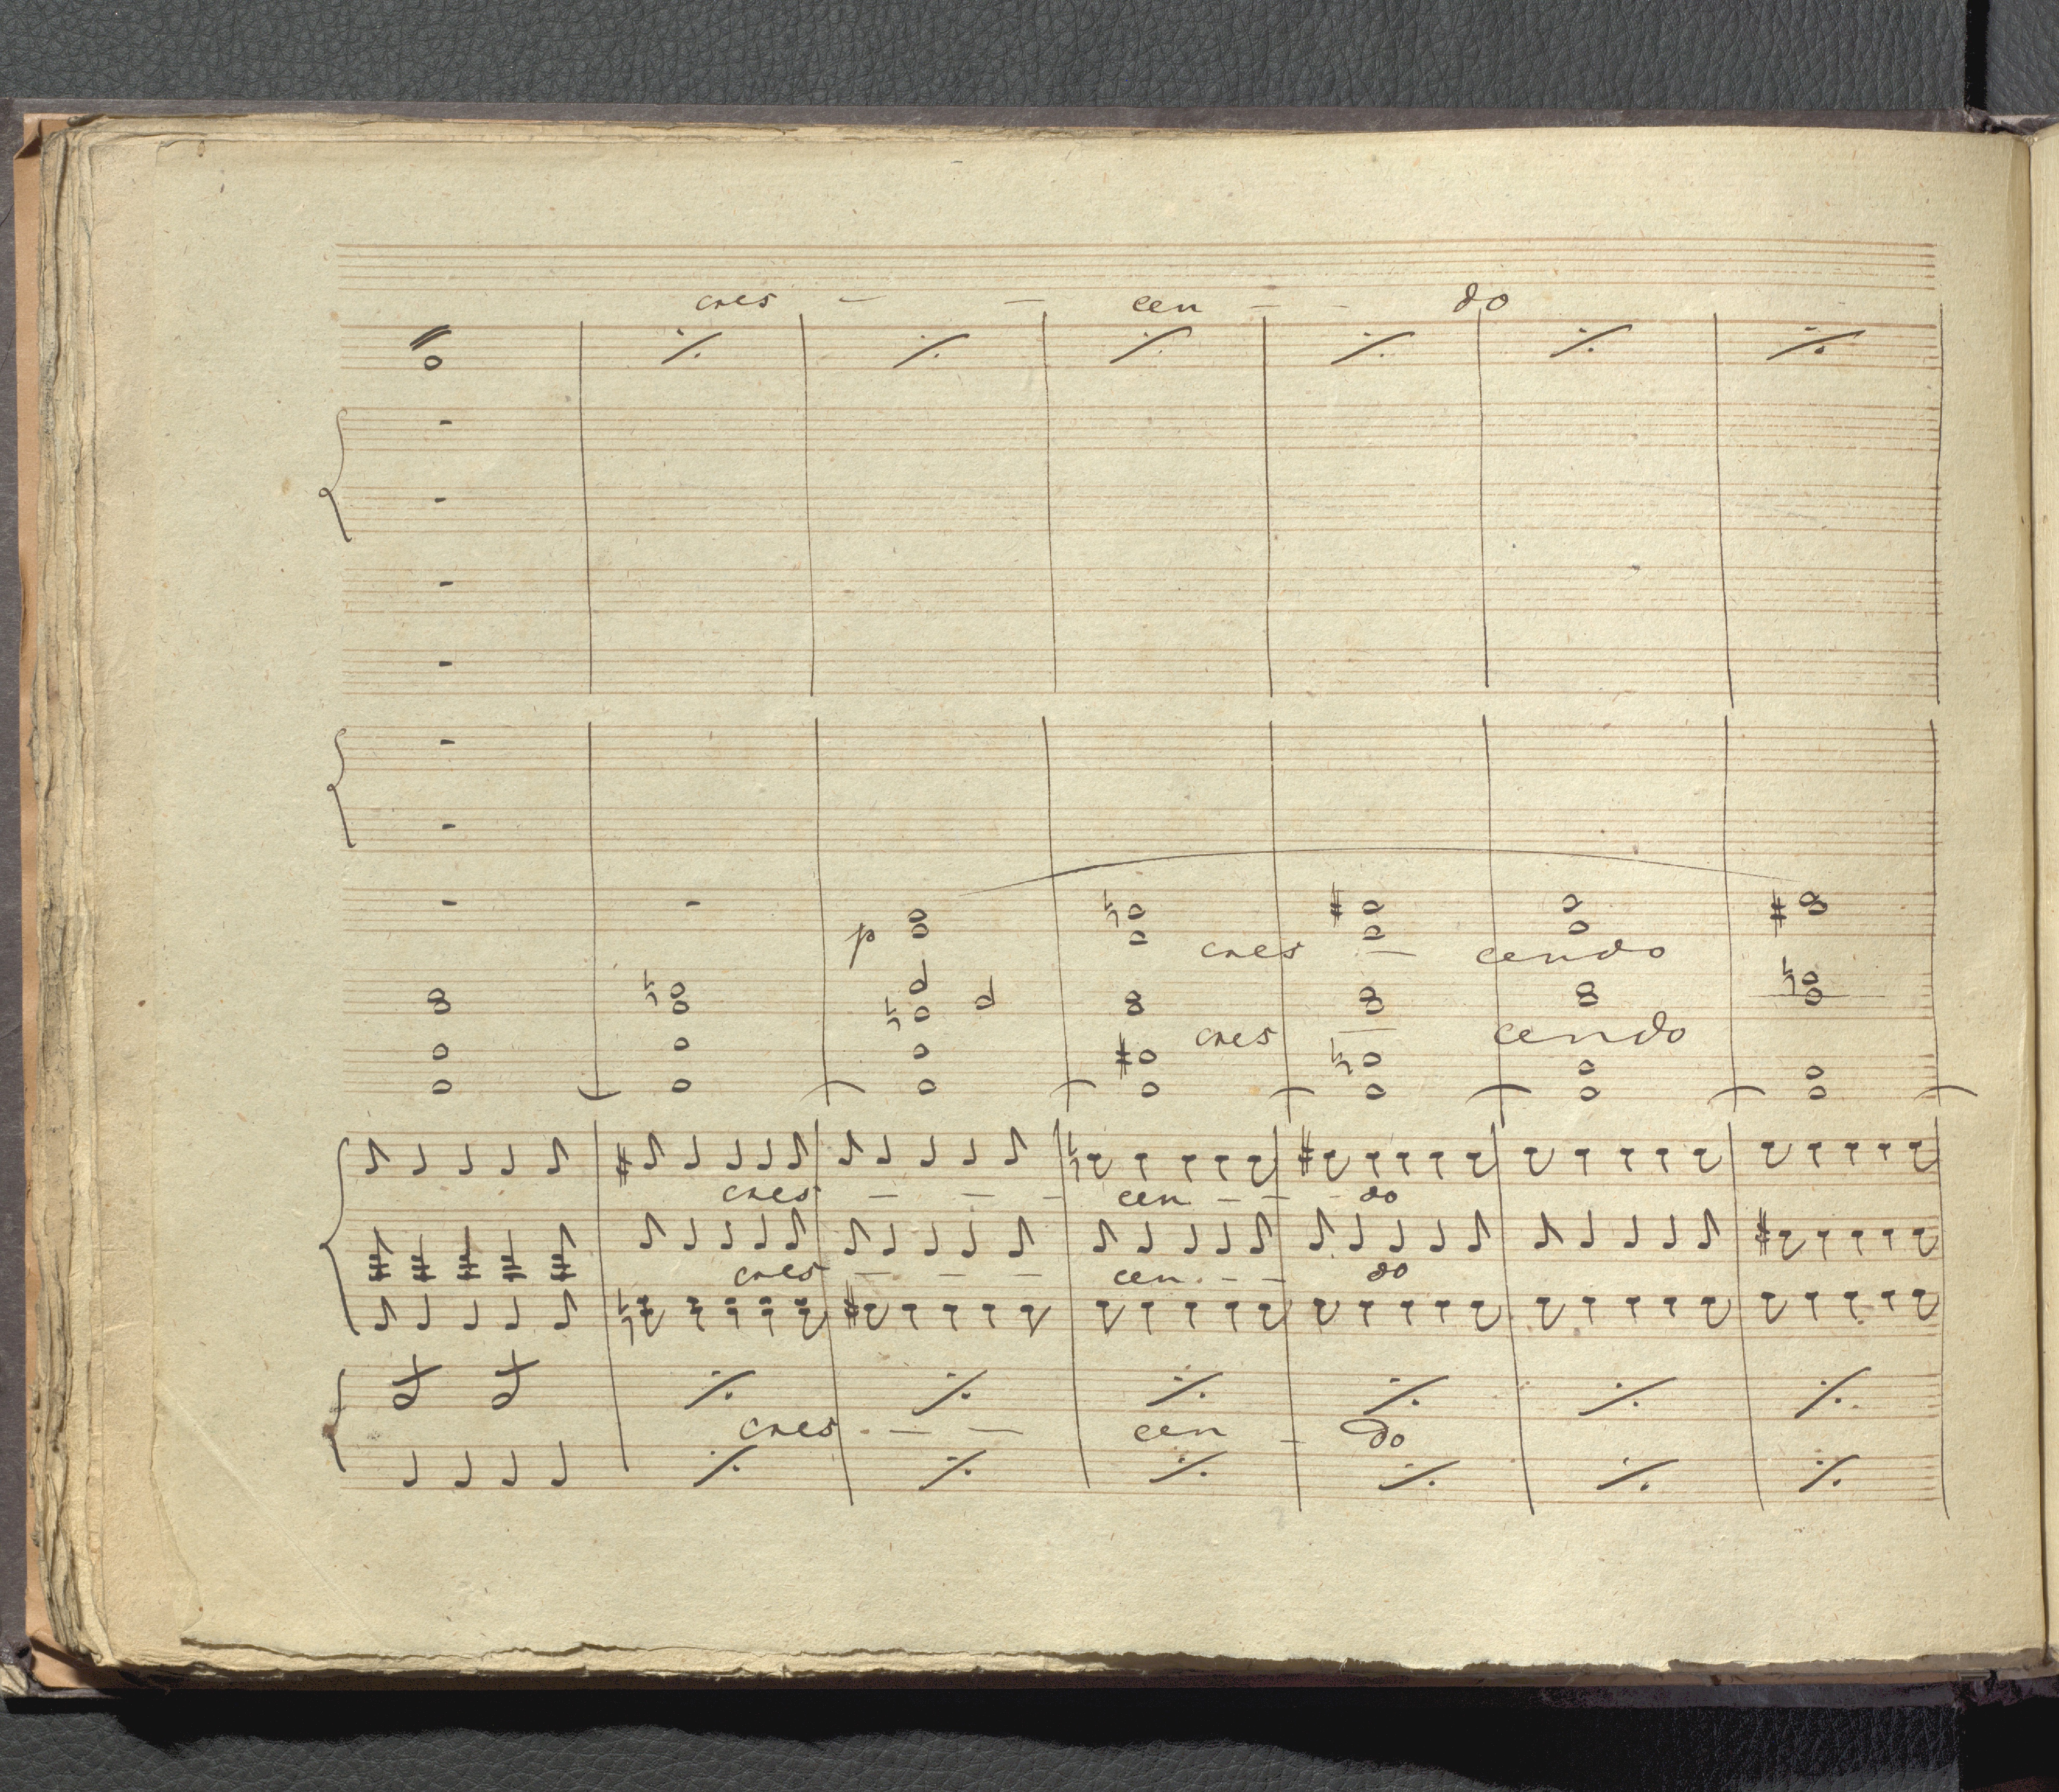 cres - - cen - - do
p
cres - cendo
cres - cendo
cres - - - cen - - - do
cres - - - cen - - do
cres - - cen - do